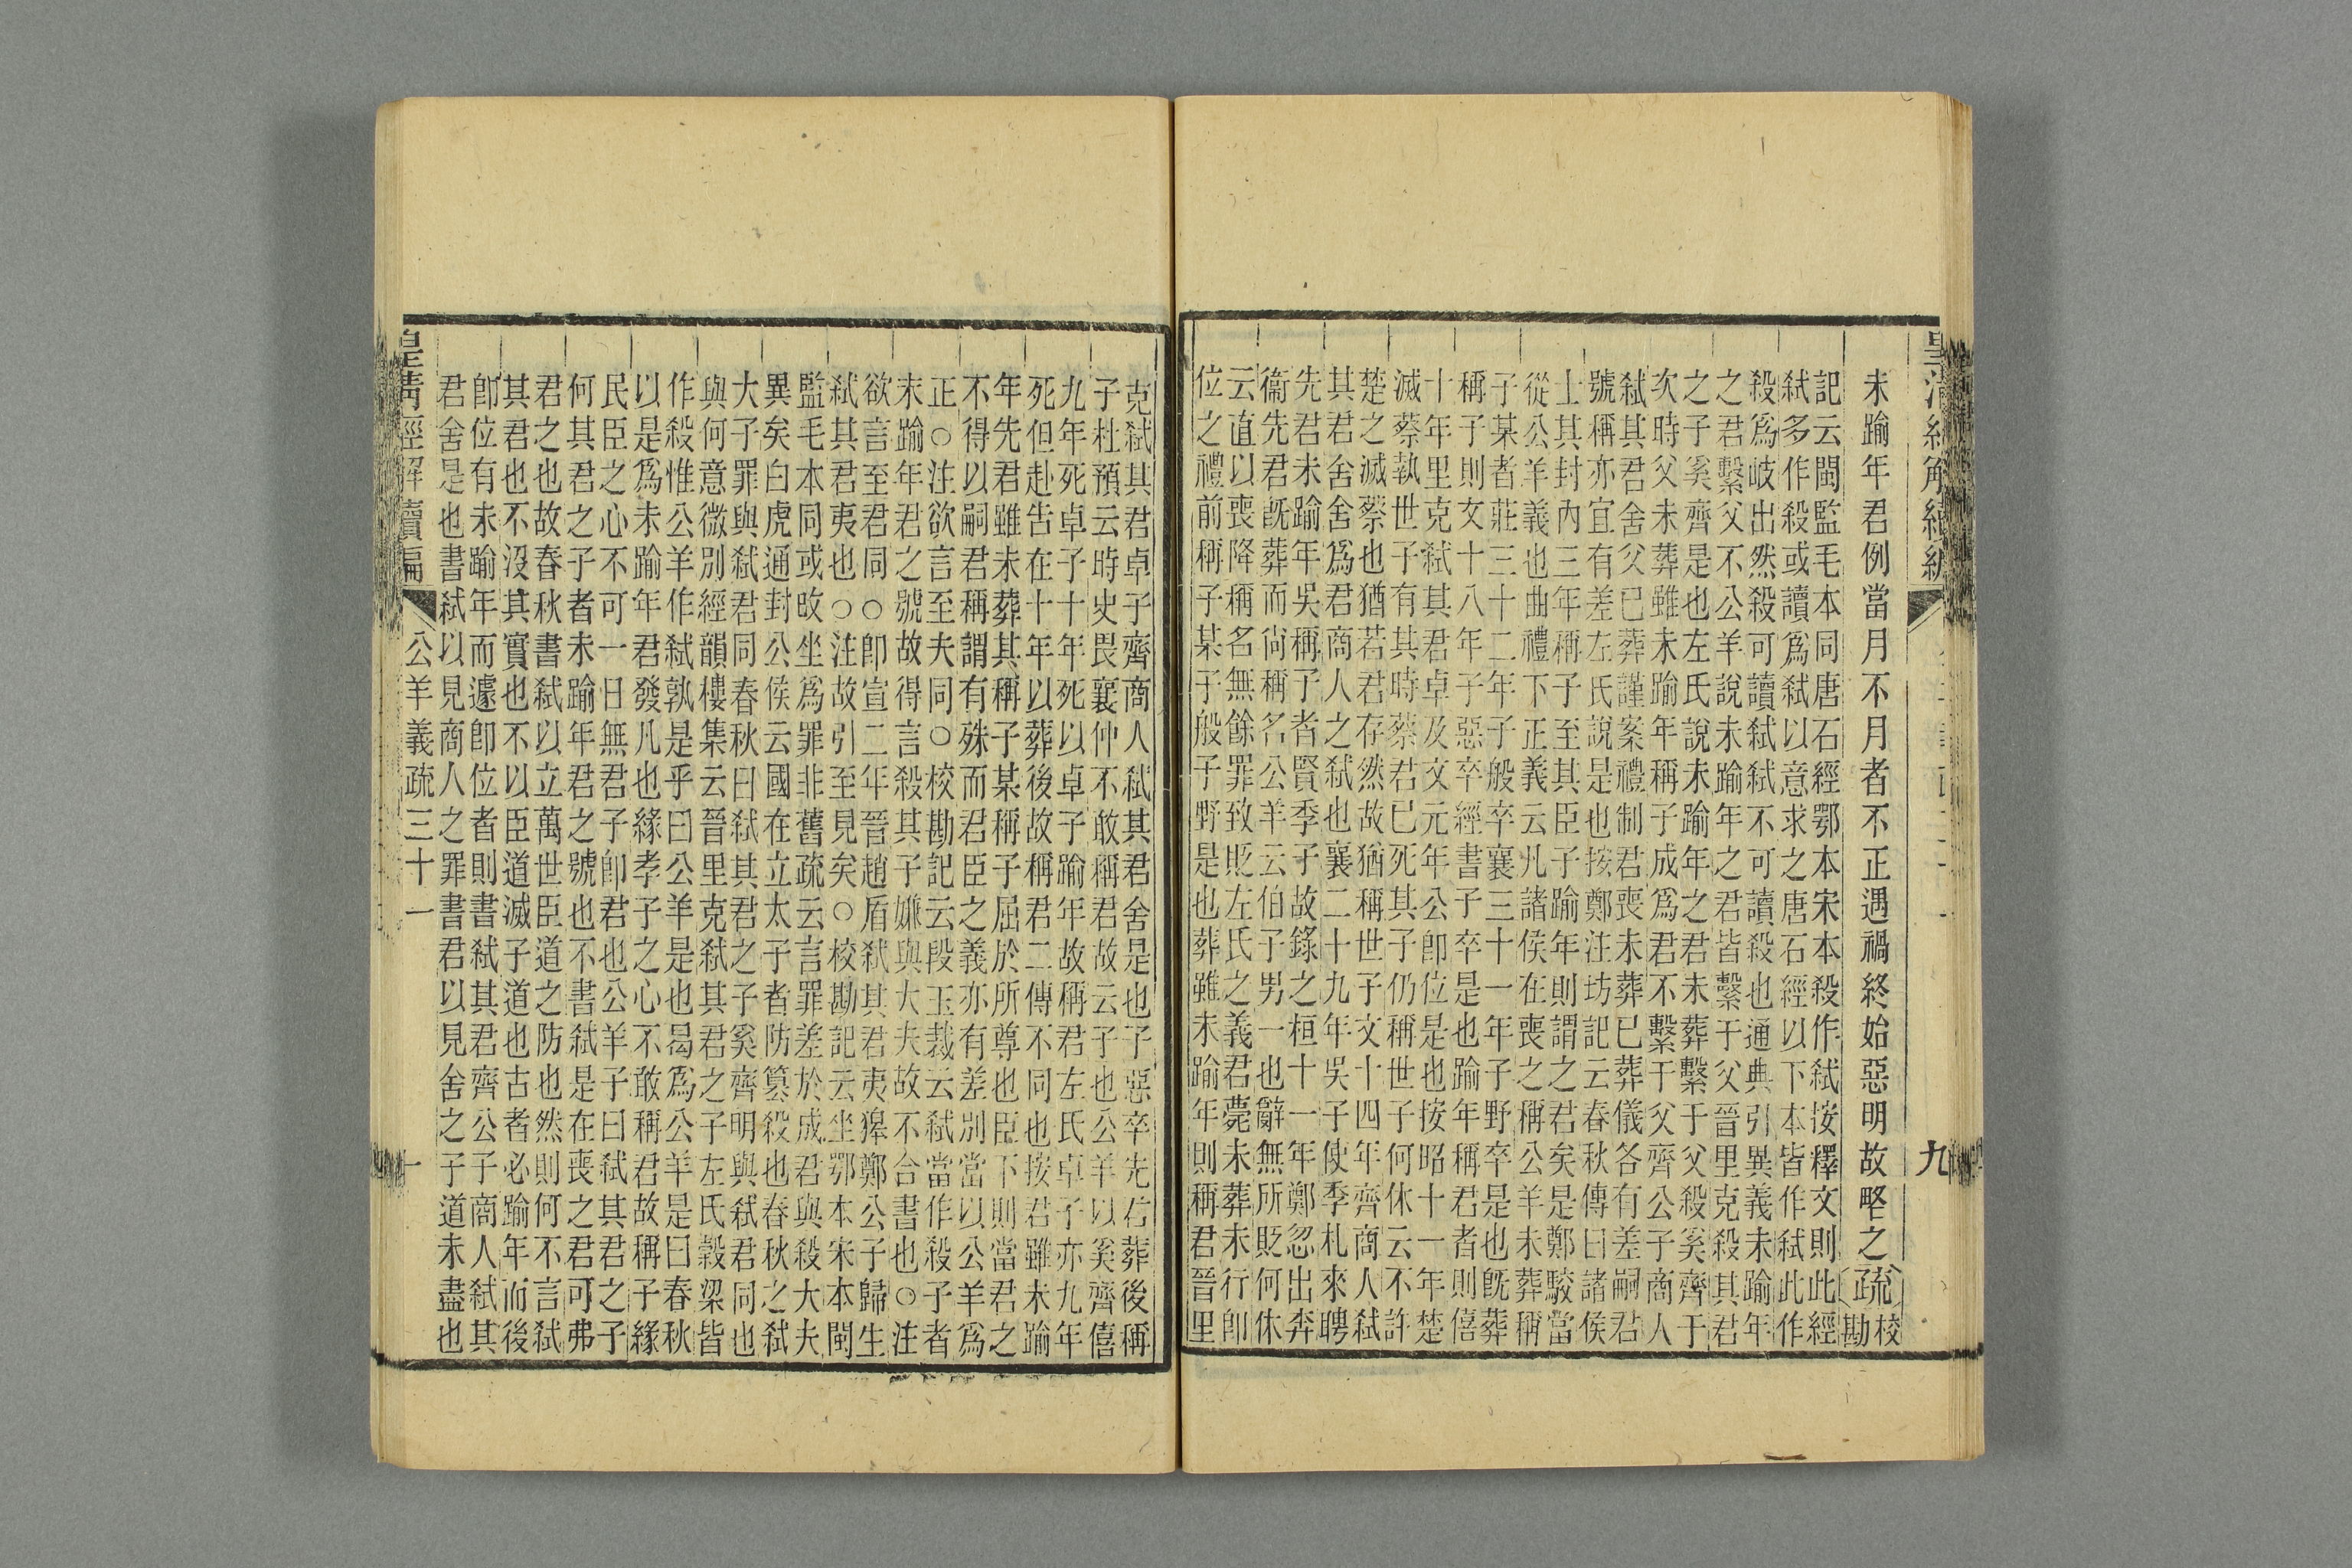 皇清經解續編
九
未踰年君例當月不月者不正遇禍終始惡明故略之疏校勘
記云閩監毛本同唐石經鄂本宋本殺作弒按釋文則此經
弒多作殺或讀爲弒以意求之唐石經以下本皆作弒此作
殺爲岐出然殺可讀弒弒不可讀殺也通典引異義未踰年
之君繫父不公羊說未踰年之君皆繫于父晉里克殺其君
之子奚齊是也左氏說未踰年之君未葬繫于父殺奚齊于
次時父未葬雖未踰年稱子成爲君不繫于父齊公子商人
弒其君舍父已葬謹案禮制君喪未葬已葬儀各有差嗣君
號稱亦宜有差左氏說是也按鄭注坊記云春秋傳曰諸侯
士其封內三年稱子至其臣子踰年則謂之君矣是鄭駮當
從公羊義也曲禮下正義云凡諸侯在喪之稱公羊未葬稱
子某者莊三十二年子般卒襄三十一年子野卒是也旣葬
稱子則文十八年子惡卒經書子卒是也踰年稱君者則僖
十年里克弒其君卓及文元年公卽位是也按昭十一年楚
滅蔡執世子有其時蔡君已死其子仍稱世子何休云不許
楚之滅蔡也猶若君存然故猶稱世子文十四年齊商人弒
其君舍舍爲君商人之弒也襄二十九年吳子使季札來聘
先君未踰年吳稱子者賢季子故錄之桓十一年鄭忽出奔
衞先君旣葬而尙稱名公羊云伯子男一也辭無所貶何休
云直以喪降稱名無餘罪致貶左氏之義君薨未葬未行卽
位之禮前稱子某子般子野是也葬雖未踰年則稱君晉里
克弒其君卓子齊商人弒其君舍是也子惡卒先君葬後稱
子杜預云時史畏襄仲不敢稱君故云子也公羊以奚齊僖
九年死卓子十年死以卓子踰年故稱君左氏卓子亦九年
死但赴告在十年以葬後故稱君二傳不同也按君雖未踰
年先君雖未葬其稱子某稱子屈於所尊也臣下則當君之
不得以嗣君稱謂有殊而君臣之義亦有差別當以公羊爲
正○注欲言至夫同○校勘記云段玉裁云弒當作殺子者
未踰年君之號故得言殺其子嫌與大夫故不合書也○注
欲言至君同○卽宣二年晉趙盾弒其君夷獔鄭公子歸生
弒其君夷也○注故引至見矣○校勘記云坐鄂本宋本閩
監毛本同或改坐爲罪非舊疏云言罪差於成君與殺大夫
異矣白虎通封公侯云國在立太子者防篡殺也春秋之弒
大子罪與弒君同春秋曰弒其君之子奚齊明與弒君同也
與何意微別經韻樓集云晉里克弒其君之子左氏穀梁皆
作殺惟公羊作弒孰是乎曰公羊是也曷爲公羊是曰春秋
以是爲未踰年君發凡也緣孝子之心不敢稱君故稱子緣
民臣之心不可一日無君子卽君也公羊子曰弒其君之子
何其君之子者未踰年君之號也不書弒是在喪之君可弗
君之也故春秋書弒以立萬世臣道之防也然則何不言弒
其君也不沒其實也不以臣道滅子道也古者必踰年而後
卽位有未踰年而遽卽位者則書弒其君齊公子商人弒其
君舍是也書弒以見商人之罪書君以見舍之子道未盡也
皇清經解續編
公羊義疏三十一
十